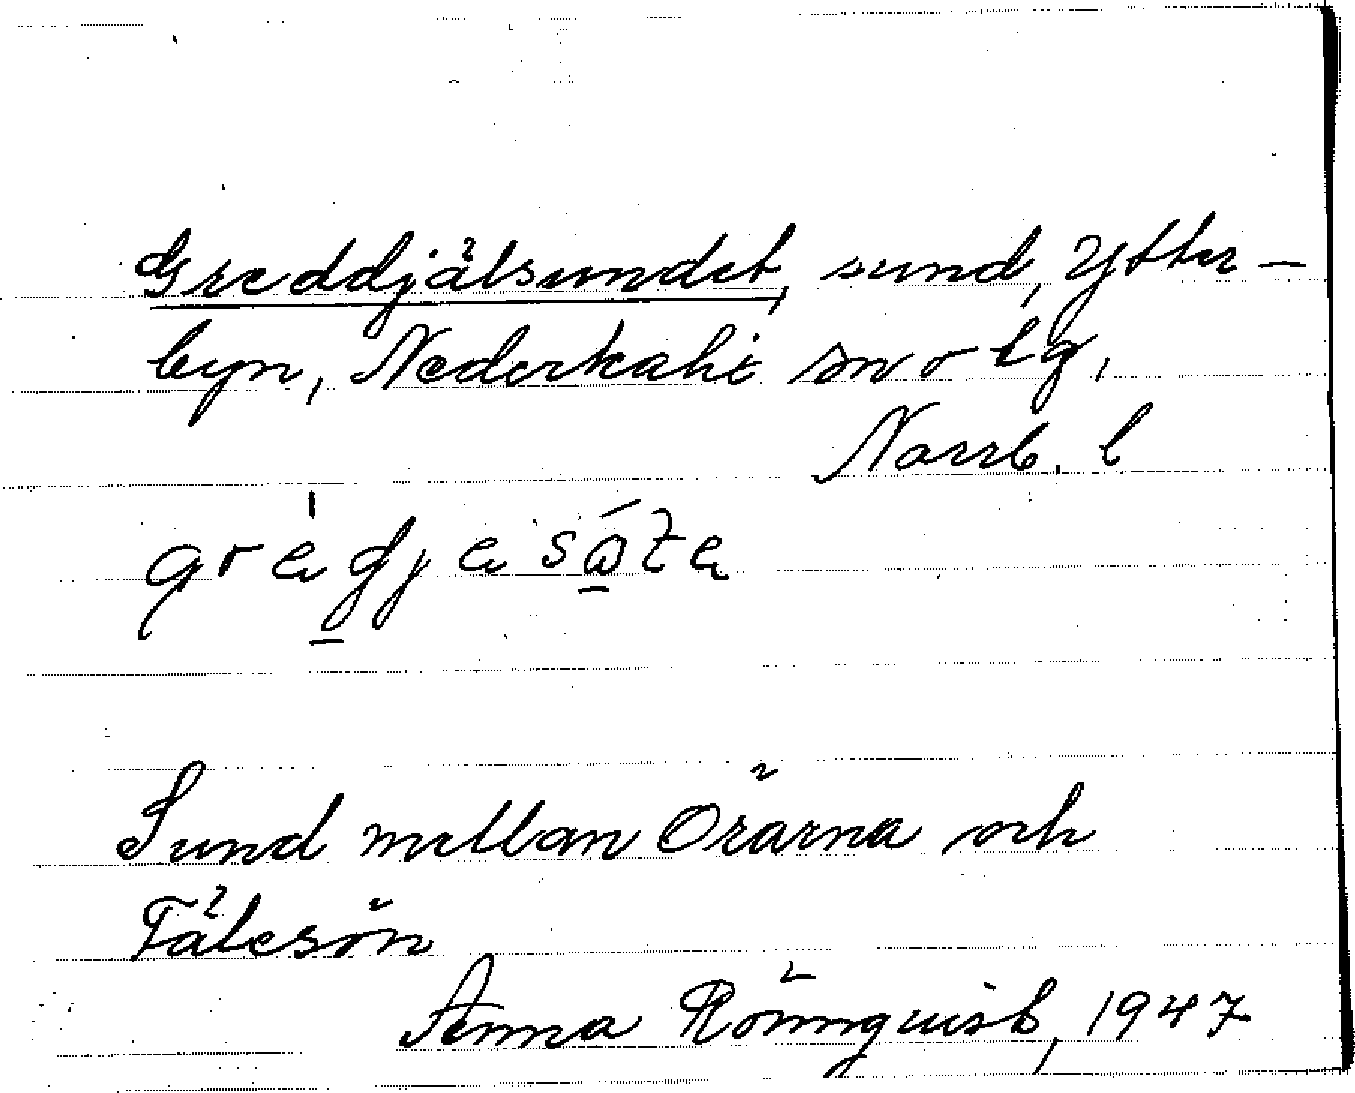 Greddjälsundet, sund, Ytter-
byn, Nederkalix sn o tg,
Norrb. l
Sund mellan Örarna och
Tälesön
Anna Rönnquist, 1947